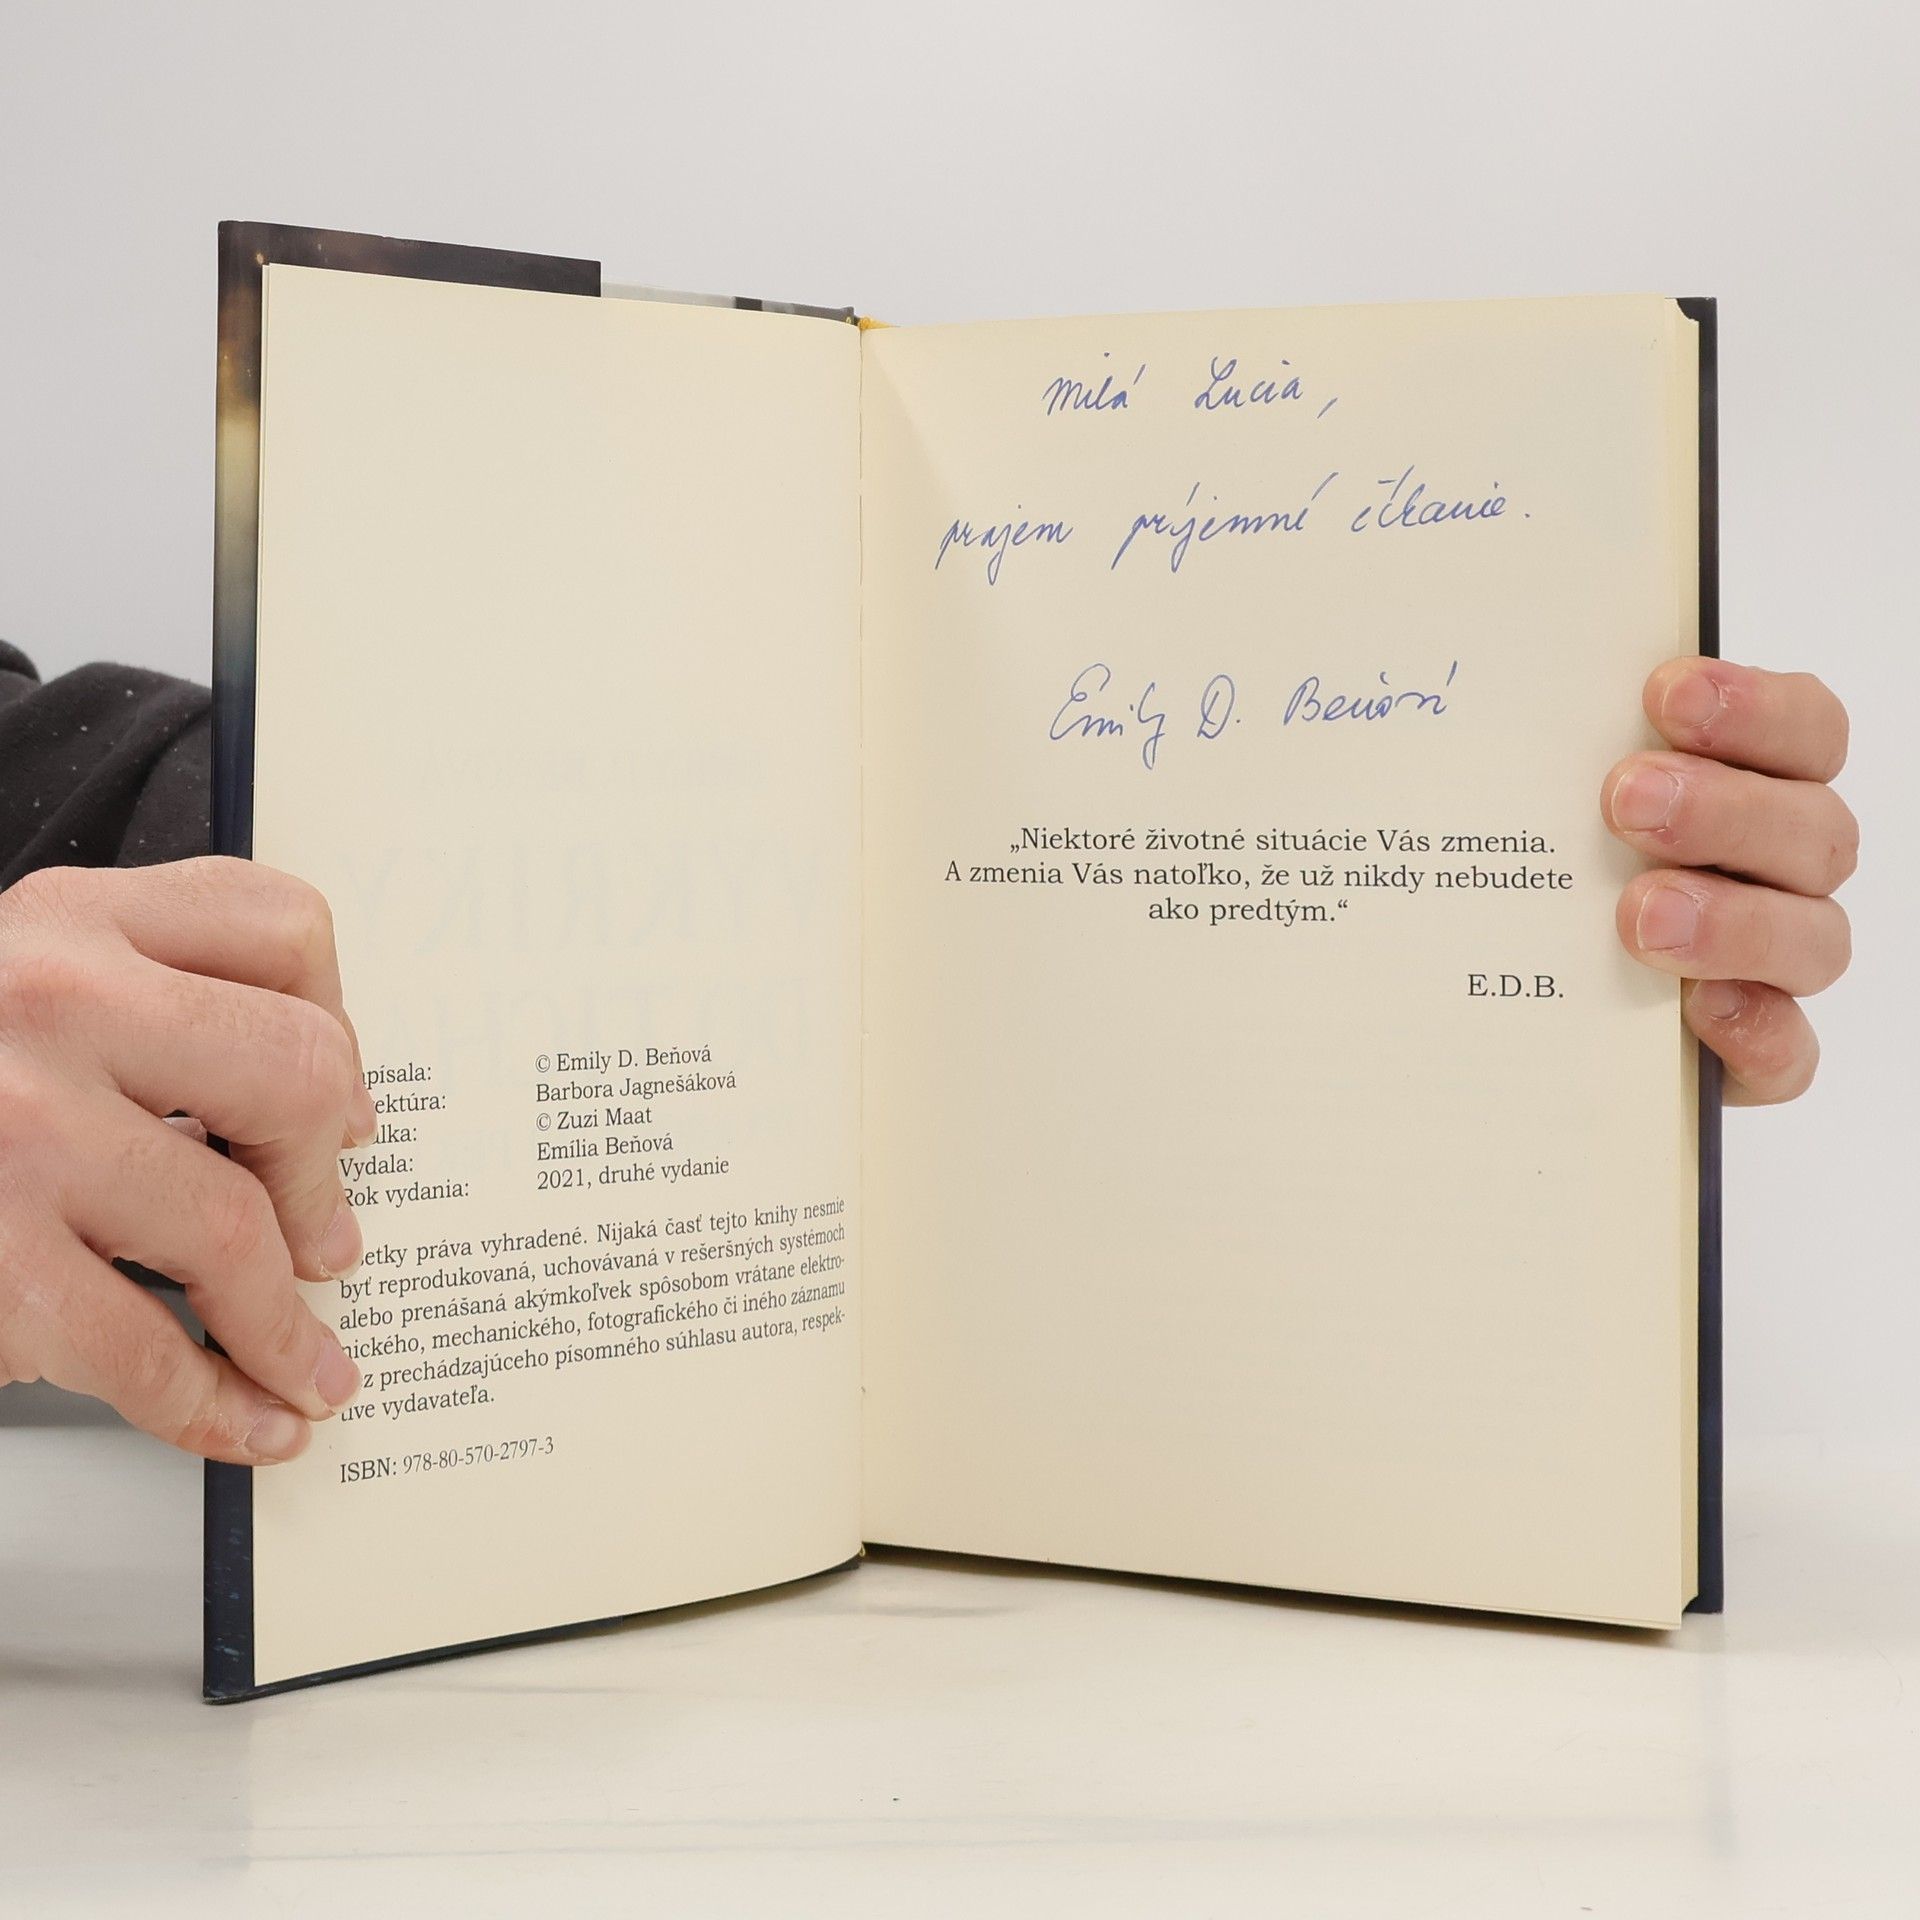 Milá Lucia,
prajem príjemné čítanie.
Emily D. Beňová
„Niektoré životné situácie Vás zmenia.
A zmenia Vás natoľko, že už nikdy nebudete
ako predtým.“
E.D.B.
písala: © Emily D. Beňová
ektúra: Barbora Jagnešáková
lka: © Zuzi Maat
Vydala: Emília Beňová
Rok vydania: 2021, druhé vydanie
etky práva vyhradené. Nijaká časť tejto knihy nesmie
byť reprodukovaná, uchovávaná v rešeršných systémoch
alebo prenášaná akýmkoľvek spôsobom vrátane elektro-
nického, mechanického, fotografického či iného záznamu
z prechádzajúceho písomného súhlasu autora, respek-
tíve vydavateľa.
ISBN: 978-80-570-2797-3